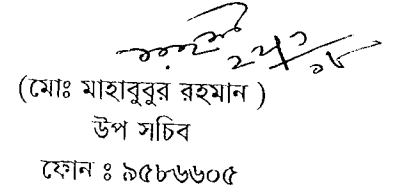 (মোঃ মাহাবুবুর রহমান )
উপ সচিব
ফোন : ৯৫৮৬৬০৫